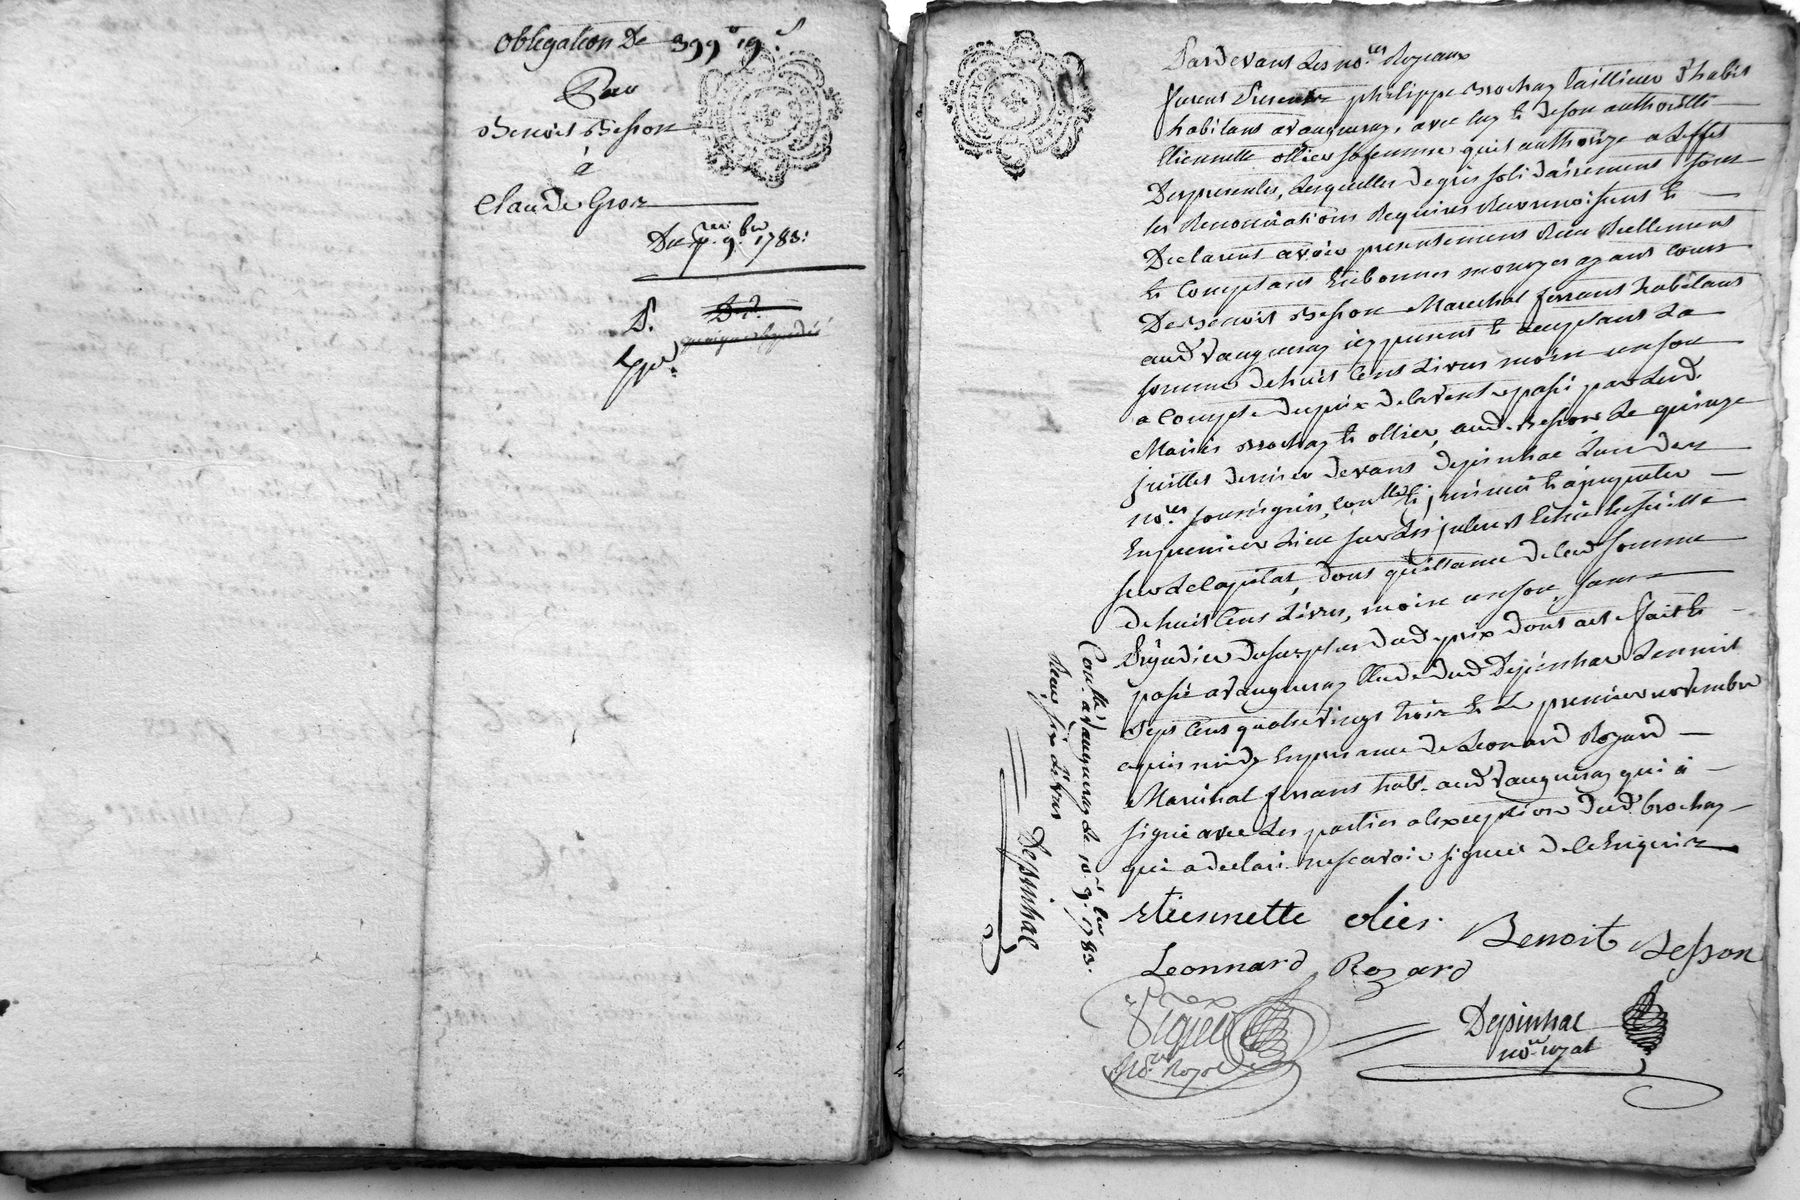 obligation De 399# 19 s
Par
Benoit Besson
à
Claude Gros
Du p.er 9.bre 1783.
Pardevant Les no.res Royaux
furent Presents philippe Brochay tailleur d'habis
habitans a vaugneray, avec luy & de son authorité
Etiennette ollier sa femme qu'il authorize a L'effet
Des presentes, Lesquelles de gré solidairement sous
les Renonciations Requises Reconnoissent &
Declarent avoir presentement Reçu Reellement
& Comptant En bonnes monoyes ayant cours
De Benoit Besson Marechal ferrant habitant
aud. vaugneray icy present & acceptant La
somme de huit Cens Livres moins un sou
a Compte du prix de la vente passé par Lesd.
Mariés Brochay & ollier, aud. Besson Le quinze
juillet dernier devant Depinhac L'un des
no.res soussignés, Con.llé &
En premier Lieu sur Les interets Ensuite
sur Le Capital, dont quittance de lad. somme
de huit Cens Livres, moins un sou, sans
Préjudice du surplus dud. prix dont acte fait &
passé a vaugneray Etude dud. Depinhac L'an mil
Sept Cens quatre vingt trois & Le premier novembre
apres midy En presence de Leonard Rozard
Marechal ferrant hab. aud. vaugneray qui a
signé avec Les parties a l'exception dud. brochay
qui a declaré ne scavoir signer de ce Enquis
Con.llé a vaugneray Le 10 9.bre 1783.
Reçu six Livres
Depinhac
Etiennette olier
Benoit Besson
Leonnard Rozard
Depinhac
no.re royal
no.re Royal